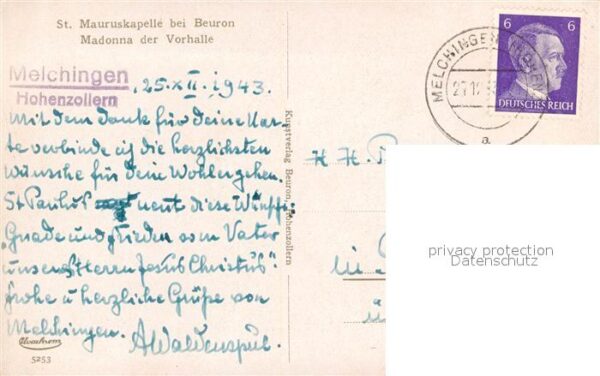 St. Mauruskapelle bei Beuron
Madonna der Vorhalle
Melchingen
Hohenzollern
25.XII.1943.
Mit dem Dank für deine Kar-
te verbinde ich die herzlichsten
Wünsche für dein Wohlergehen.
St Paulus nent diese Wünsche:
"Gnade und Frieden vom Vater
unseres Herrn Jesus Christus".
Frohe u herzliche Grüße von
Melchingen. AWaldenspul.
5253
Kunstverlag Beuron, Hohenzollern
MELCHINGEN
a
6 6
DEUTSCHES REICH
H. H.
in
privacy protection
Datenschutz